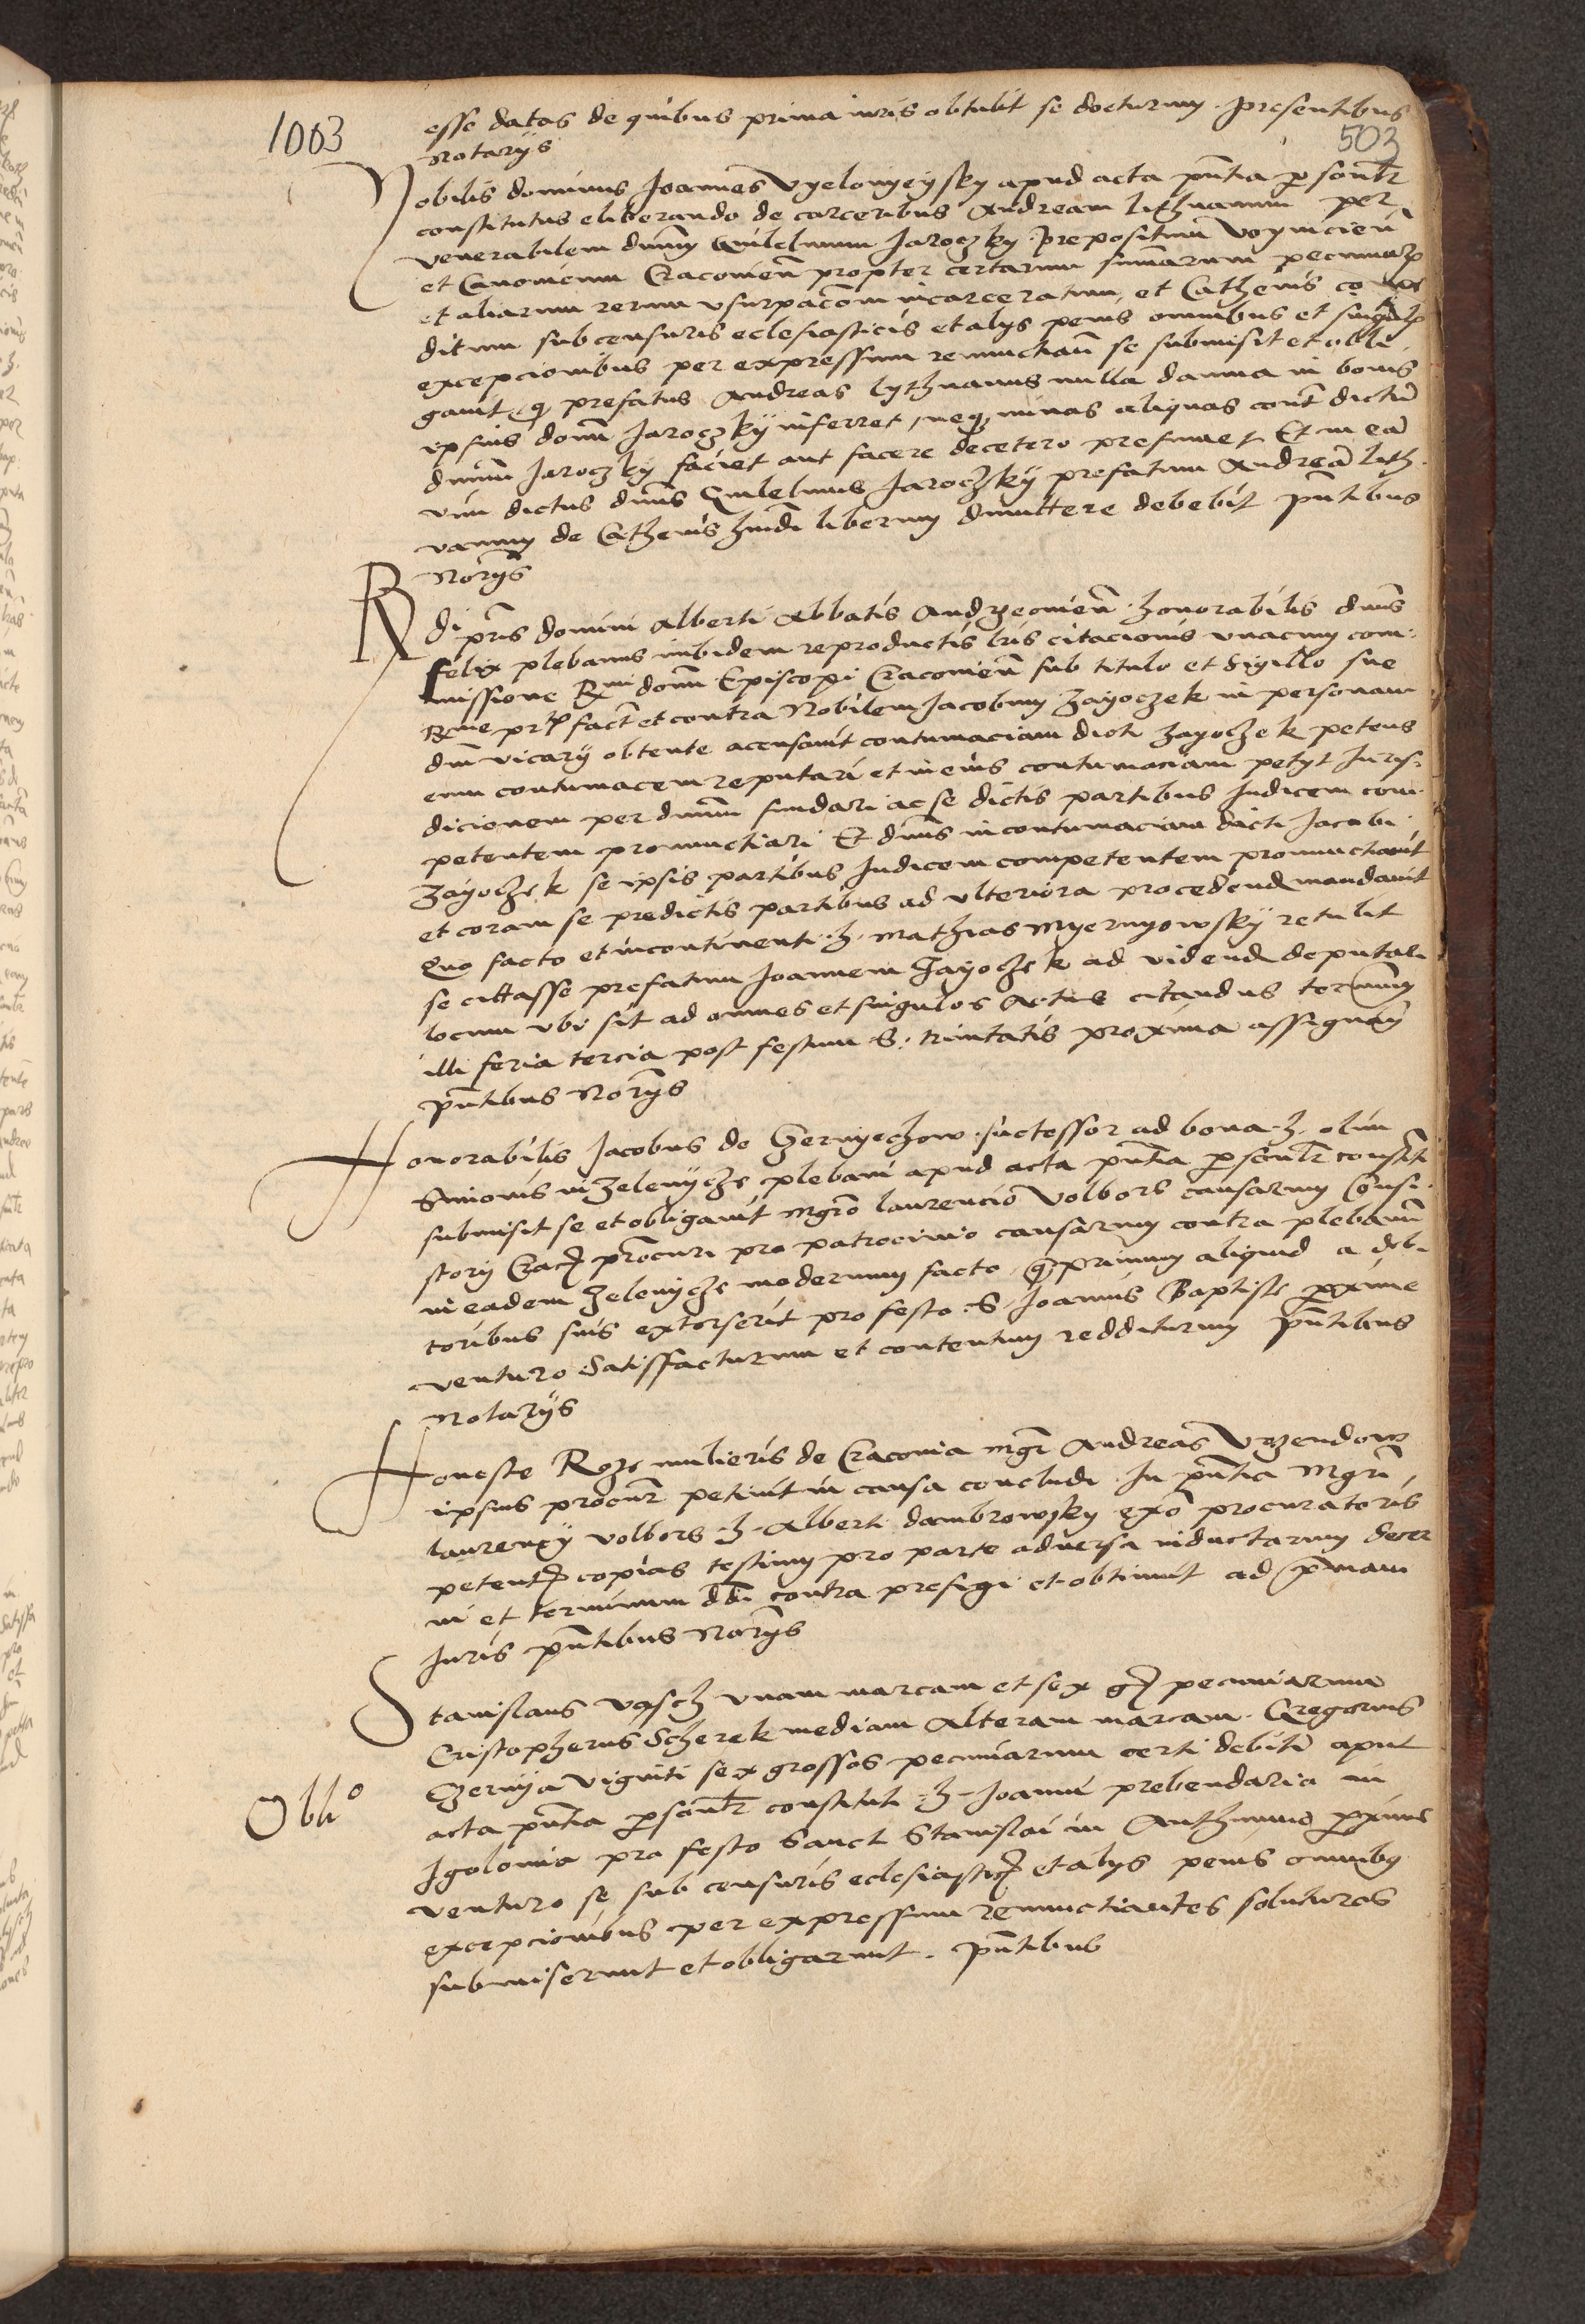 1003
503
esse datas de quibus prima iuris obtulit se docturum. presentibus
Notarys
Nobilis dominus Joannes Vyelonyeysky apud acta pn̄tia ꝑsonlr
constitutus eliberando de carceribus Andream lithuanum per
venerabilem dnm̄ Guilelmum Jaroczky prepositum Voyniciēn
et Canonicum Cracouien̄ propter certarum summarum pecuniarꝝ
et aliarum rerum vsurpacōem incarceratum, et Cathenis
ditum sub censuris eclesiasticis et alys penis omnibus et singulꝝ
excepcionibus per expressum renunctian̄ se submisit et obli
gauit q prefatus Andreas lythuanus nulla damna in bonis
ipsius domi Jaroczky inferret, neqꝫ minas aliquas cont dictū
dnum̄ Jaroczky faciet aut facere decetero presumet Et in eā
vim dictus dnūs Guilelmus Jaroczky prefatum Andreā Lith
vanum de Cathenis hmōi liberum dimittere debebit pn̄tibus
Norys
Rdi pr̄is domini Alberti Abbatis Andrzeouien̄ honorabilis dnūs
felix plebanus inibidem reproductis lr̄is citacionis vnacum com-
missione Rmi domi Episcopi Cracouien̄ sub titulo et Sigillo sue
Rme prꝫ fact et contra Nobilem Jacobum Zayoczek in personam
dni vicary obtente accusauit contumaciam dicti Zayoczek petens
eum contumacem reputari et in eius contumaciam petyt Juris-
dicionem per dnum̄ fundari ac se dictis partibus Judicem com
petentem pronunctiari Et dnūs in contumaciam dicti Jacobi
Zayoczek se ipsis partibus Judicem competentem pronunctiauit
et coram se predictis partibus ad vlteriora procedend mandauit
Quo facto et incontinenti h. Mathias Myernyowsky retulit
se citasse prefatum Joannem Zayoczek ad videnđ deputari
locum vbi sit ad omnes et singulos Actus citandus terminum
illi feria tercia post festum S. trinitatis proxima assignan̄
pn̄tibus Norys
Honorabilis Jacobus de Czernyechow successor ad bona h. olim
Simonis in Zelenycze plebani apud acta pn̄tia ꝑsonlr constit
submisit se et obligauit Mgrō laurencio Volbors causarum Consi
story Crac procuri pro patrocinio causarum contra plebanū
in eadem Zelenycze modernum facto qprimum aliquid a debi
toribus suis extorserit pro festo S. Joannis Baptiste ꝓxime
venturo Satisfacturum et contentum redditurum pn̄tibus
Notarys
Honeste Roze mulieris de Cracouia Mgr Andreas Vrzendow
ipsius procur petiuit in causa concludi. In pn̄tia Mgri
laurency Volbors h. Alberti dambrowsky exō procuratoris
petent copias testium pro parte aduersa inductarum decer
ni et terminum dd̄i contra prefigi et obtinuit ad primam
Juris pn̄tibus Norys
Stanislaus Vasch vnam marcam et sex gꝫ pecuniarum
Cristopherus Scherek mediam Alteram marcam. Gregorius
Czernya viginti sex grossos pecuniarum certi debiti apud
Obliº
acta pn̄tia ꝑsonlr constituti h. Joanni prebendario in
Jgolomia pro festo Sanct Stanislai in Authumno ꝓxime
venturo se sub censuris eclesiasticꝫ et alys penis omnibꝫ
excepcionibus per expressum renunctiantes soluturos
submiserunt et obligarunt. pn̄tibus